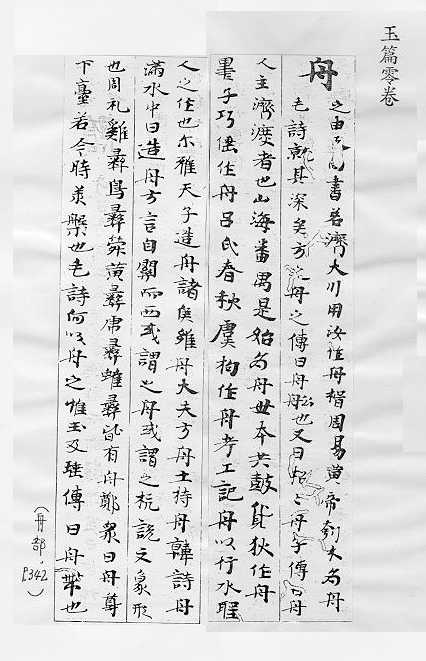 玉篇零卷
舟
之由反尚書若濟大川用汝作舟楫周易黄帝刳木為舟
毛詩就其深矣方之舟之傳曰舟舩也又曰招〻舟子傳曰舟
人主濟渡者也山海番禺是始為舟世本共鼓貨狄作舟
墨子巧倕作舟呂氏春秋虞姁作舟考工記舟以行水聖
人之作也尔雅天子造舟諸侯維舟大夫方舟士特舟韓詩舟
滿水中曰造舟方言自關而西或謂之舟或謂之杭說文象形
也周礼雞彝鳥彝斝黄彝虎彝蜼彝皆有舟鄭衆曰舟尊
下臺若今時承槃也毛詩何以舟之惟玉及瑤傳曰舟帶也
(舟部·P342)